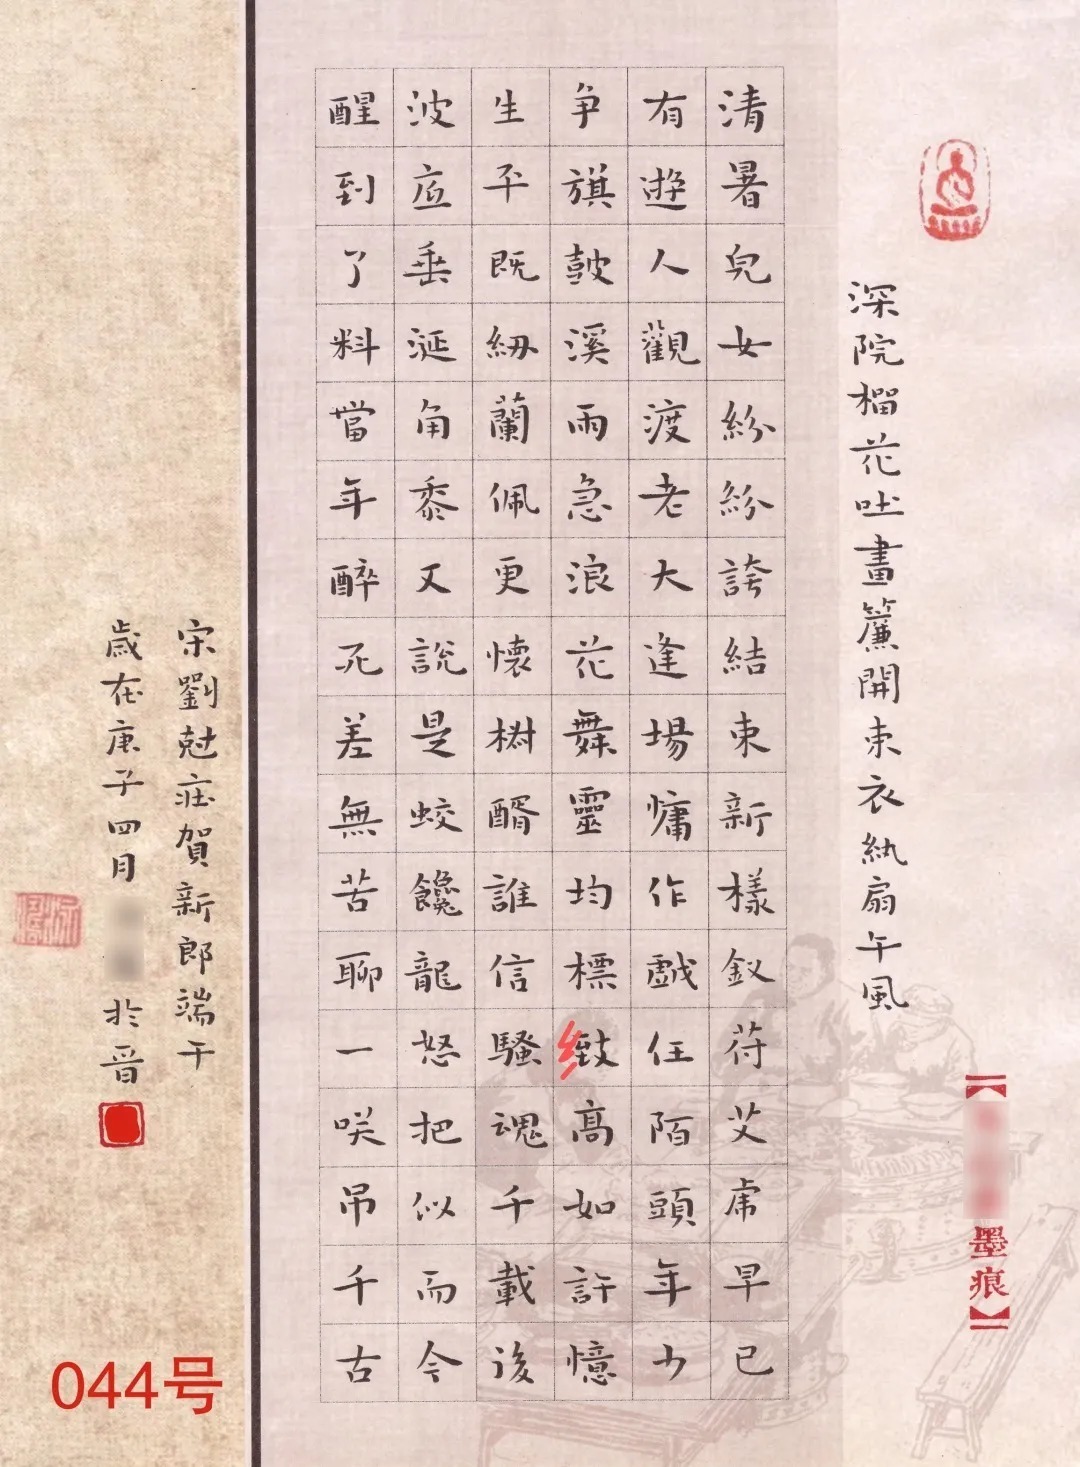 深院榴花吐畫簾開束衣紈扇午風
清暑兒女紛紛誇結束新樣釵苻艾虎早已
有遊人觀渡老大逢場慵作戲任陌頭年少
争旗鼓溪雨急浪花舞靈均標致高如許憶
生平既紉蘭佩更懷椒醑誰信騷魂千載後
波底垂涎角黍又說是蛟饞龍怒把似而今
醒到了料當年醉死差無苦聊一咲吊千古
宋劉尅莊賀新郎端午
歲在庚子四月
於晋
【
墨痕】
044号